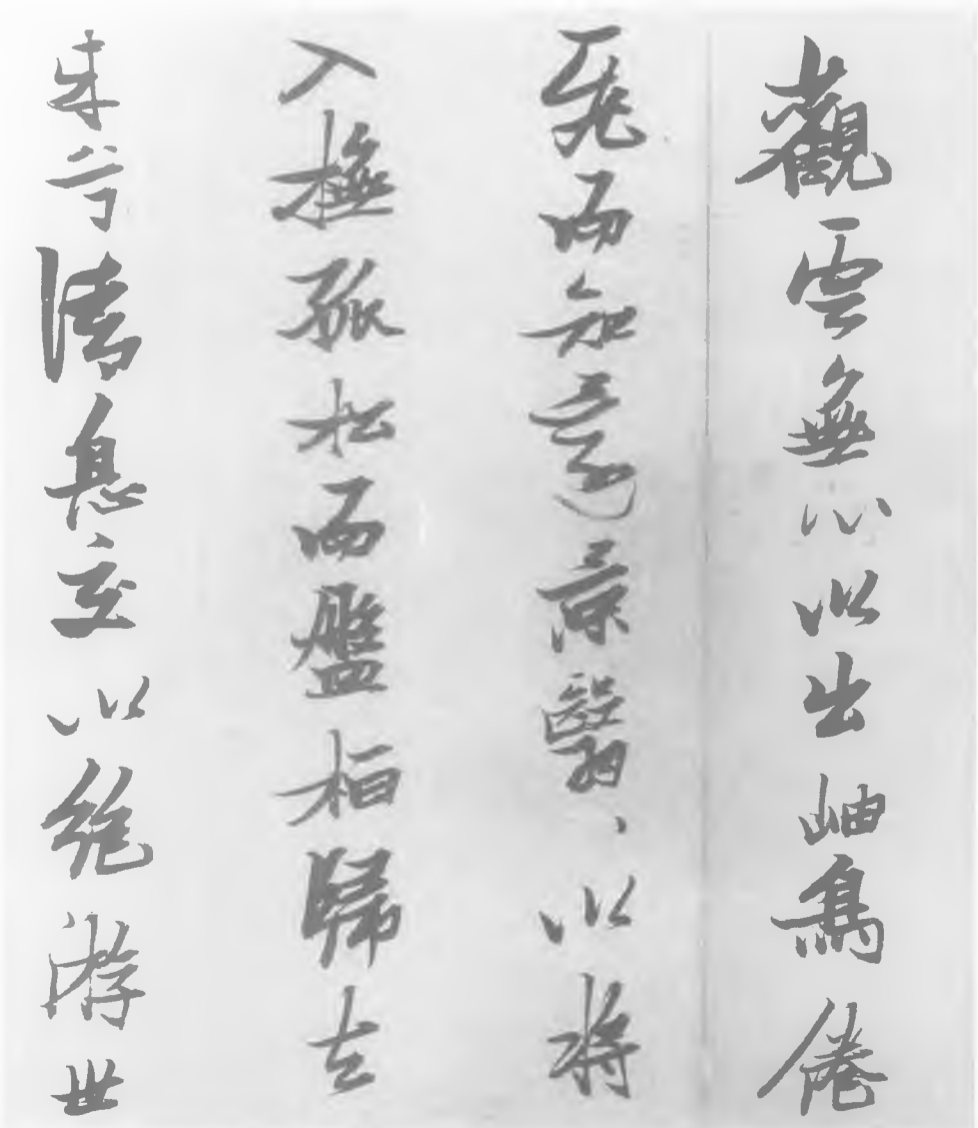 觀雲無心以出岫鳥倦
飛而知還景翳、以將
入撫孤松而盤桓歸去
来兮請息交以絶游世